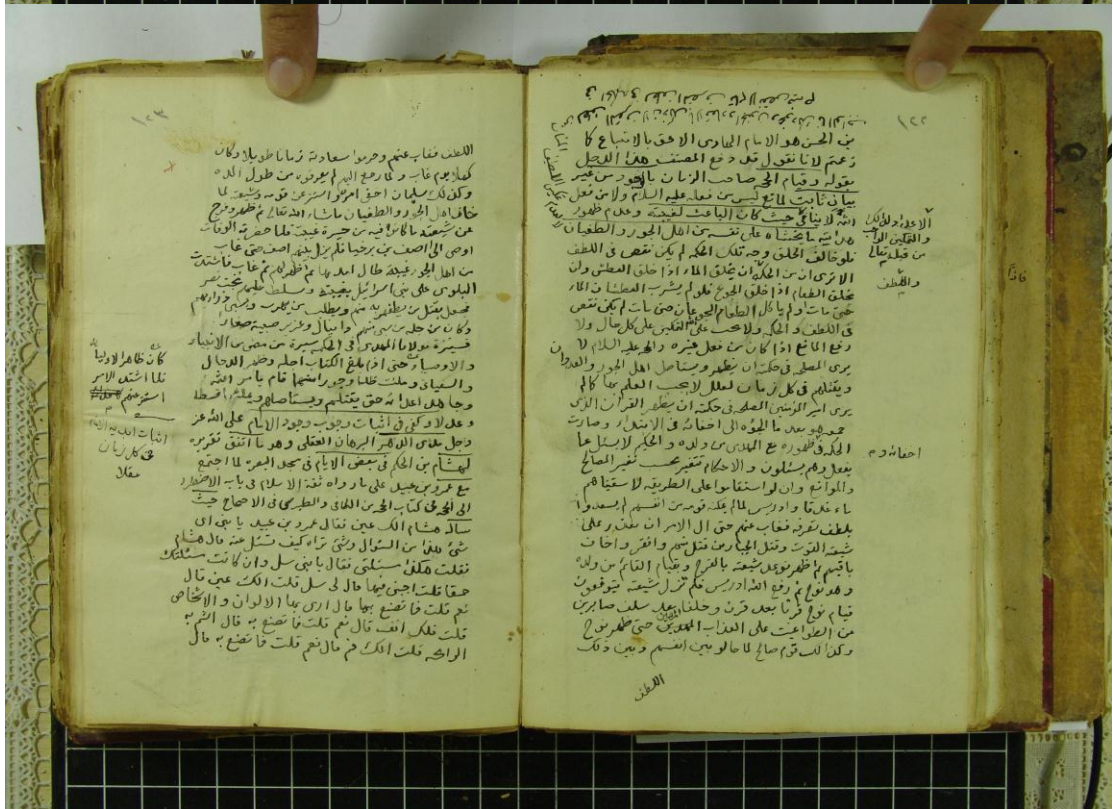 ١٢٢
بن الحسن هو الامام الهادى الاحق بالاتباع كا
زعمتم لانا نقول قد دفع المصنف هذا الدخل
بقوله وقيام الحجه صاحب الزمان بالجود من غير
بيان ثابت لمانع ليس من فعله عليه السلام ولا من فعل
الله لا ينافى حيث كان الباعث لغيبته وعدم ظهور
هدايته ما يخشاه على نفسه من اهل الجور والطغيان
فلو خالف الخلق وجه تلك الحكمه لم يكن نقص فى اللطف
الا ترى ان من الحكمة ان يخلق الماء اذا خلق العطش وان
يخلق الطعام اذا خلق الجوع فلو لم يشرب العطشان الماء
حتى مات او لم ياكل الطعام الجوعان حتى مات لم يكن نقص
فى اللطف و الحكمه ولا يجب على الله التمكين على كل حال ولا
رفع المانع اذا كان من فعل غيره والحجه عليه السلام لا
يرى المصلحه فى حكمته ان يظهر ويستاصل اهل الجور والعدوان
ويقتلهم فى كل زمان لعلل لا يجب العلم بها كما لم
يرى امير المؤمنين المصلحه فى حكمته ان يظهر القران الذى
جمعه هو بعد ما الجؤه الى اخفائه فى الابتداء وصارت
الحكمه فى ظهوره مع المهدى من ولده و الحكيم لا يسئل عما
يفعل وهم يسئلون و الاحكام تتغير بحسب تغير المصالح
والموانع وان لو استقاموا على الطريقه لاسقيناهم
ماء غدقا و ادريس لما لم يمكنه قومه من انفسهم لم يسعدوا
بلطف تعرفه فغاب عنهم حتى ال الامر ان تعذر على
شيعته القوت وقتل الجبار من قتل منهم وافقر واخاف
باقيهم ثم ظهر فوعد شيعته بالفرج وبقيام القائم من ولده
وهو نوح ثم رفع الله ادريس فلم تزل شيعته يتوقعون
قيام نوح قرنا بعد قرن وخلفا بعد سلف صابرين
من الطواغيت على العذاب المهين حتى ظهر نوح
وكذلك قوم صالح لما حالو بين انفسهم وبين ذلك
اللطف
والتمكين الواجب
من قبله تعالى
واللطف
اخفائه و م
١٢٣
اللطف فغاب عنهم وحرموا سعادته زمانا طويلا وكان
كهلا يوم غاب و لما رجع اليهم لم يعرفوه من طول المده
وكذلك سليمان اخفى امره واستتر عن قومه وشيعته لما
خاف اهل الجور و الطغيان ما شاء الله تعالى ثم ظهر وفرج
عن شيعته ما كانوا فيه من حيرة غيبته فلما حضرته الوفات
اوصى الى اصف بن برخيا فلم يزل بينهم اصف حتى غاب
من اهل الجور غيبة طال امدها ثم ظهر لهم ثم غاب فاشتدت
البلوى على بنى اسرائيل بغيبته وسلط عليهم بخت نصر
فجعل يقتل من يظفر به منهم ويطلب من يهرب ويسبى ذراريهم
وكان من جمله من سبى منهم دانيال وعزير صبية صغار
فسيرة مولانا المهدى فى الحكمه سيرة من مضى من الانبياء
و الاوصياء حتى اذا بلغ الكتاب اجله وظهر الدجال
و السفيانى وملئت ظلما وجورا منهما قام بامر الله
وجاهد اعداء الله حق يقتلهم ويستاصلهم ويملئها قسطا
وعدلا وكفى فى اثبات وجوب وجود الامام على الله عز
وجل بمدى الدهر البرهان العقلى وهو ما اتفق تقريره
لهشام بن الحكم فى بعض الايام فى مسجد البصره لما اجتمع
مع عمرو بن عبيد على ما رواه ثقة الاسلام فى باب الاضطرار
الى الحجه فى كتاب الحجه من الكافى والطبرسى فى الاحتجاج حيث
ساله هشام الك عين فقال عمرو بن عبيد يا بنى اى
شئ هذا من السؤال وشئ تراه كيف تسئل عنه قال هشام
فقلت هكذا مسئلتى فقال يا بنى سل وان كانت مسئلتك
حمقا قلت اجبنى فيها قال لى سل قلت الك عين قال
نعم قلت فما تصنع بها قال ارى بها الالوان و الاشخاص
قلت فلك انف قال نعم قلت فما تصنع به قال اشم به
الرائحه قلت الك فم قال نعم قلت فما تصنع به قال
كان ظاهرا لاوليا
فلما اشتد الامر
استتر عنهم
فى كل زمان
عقلا